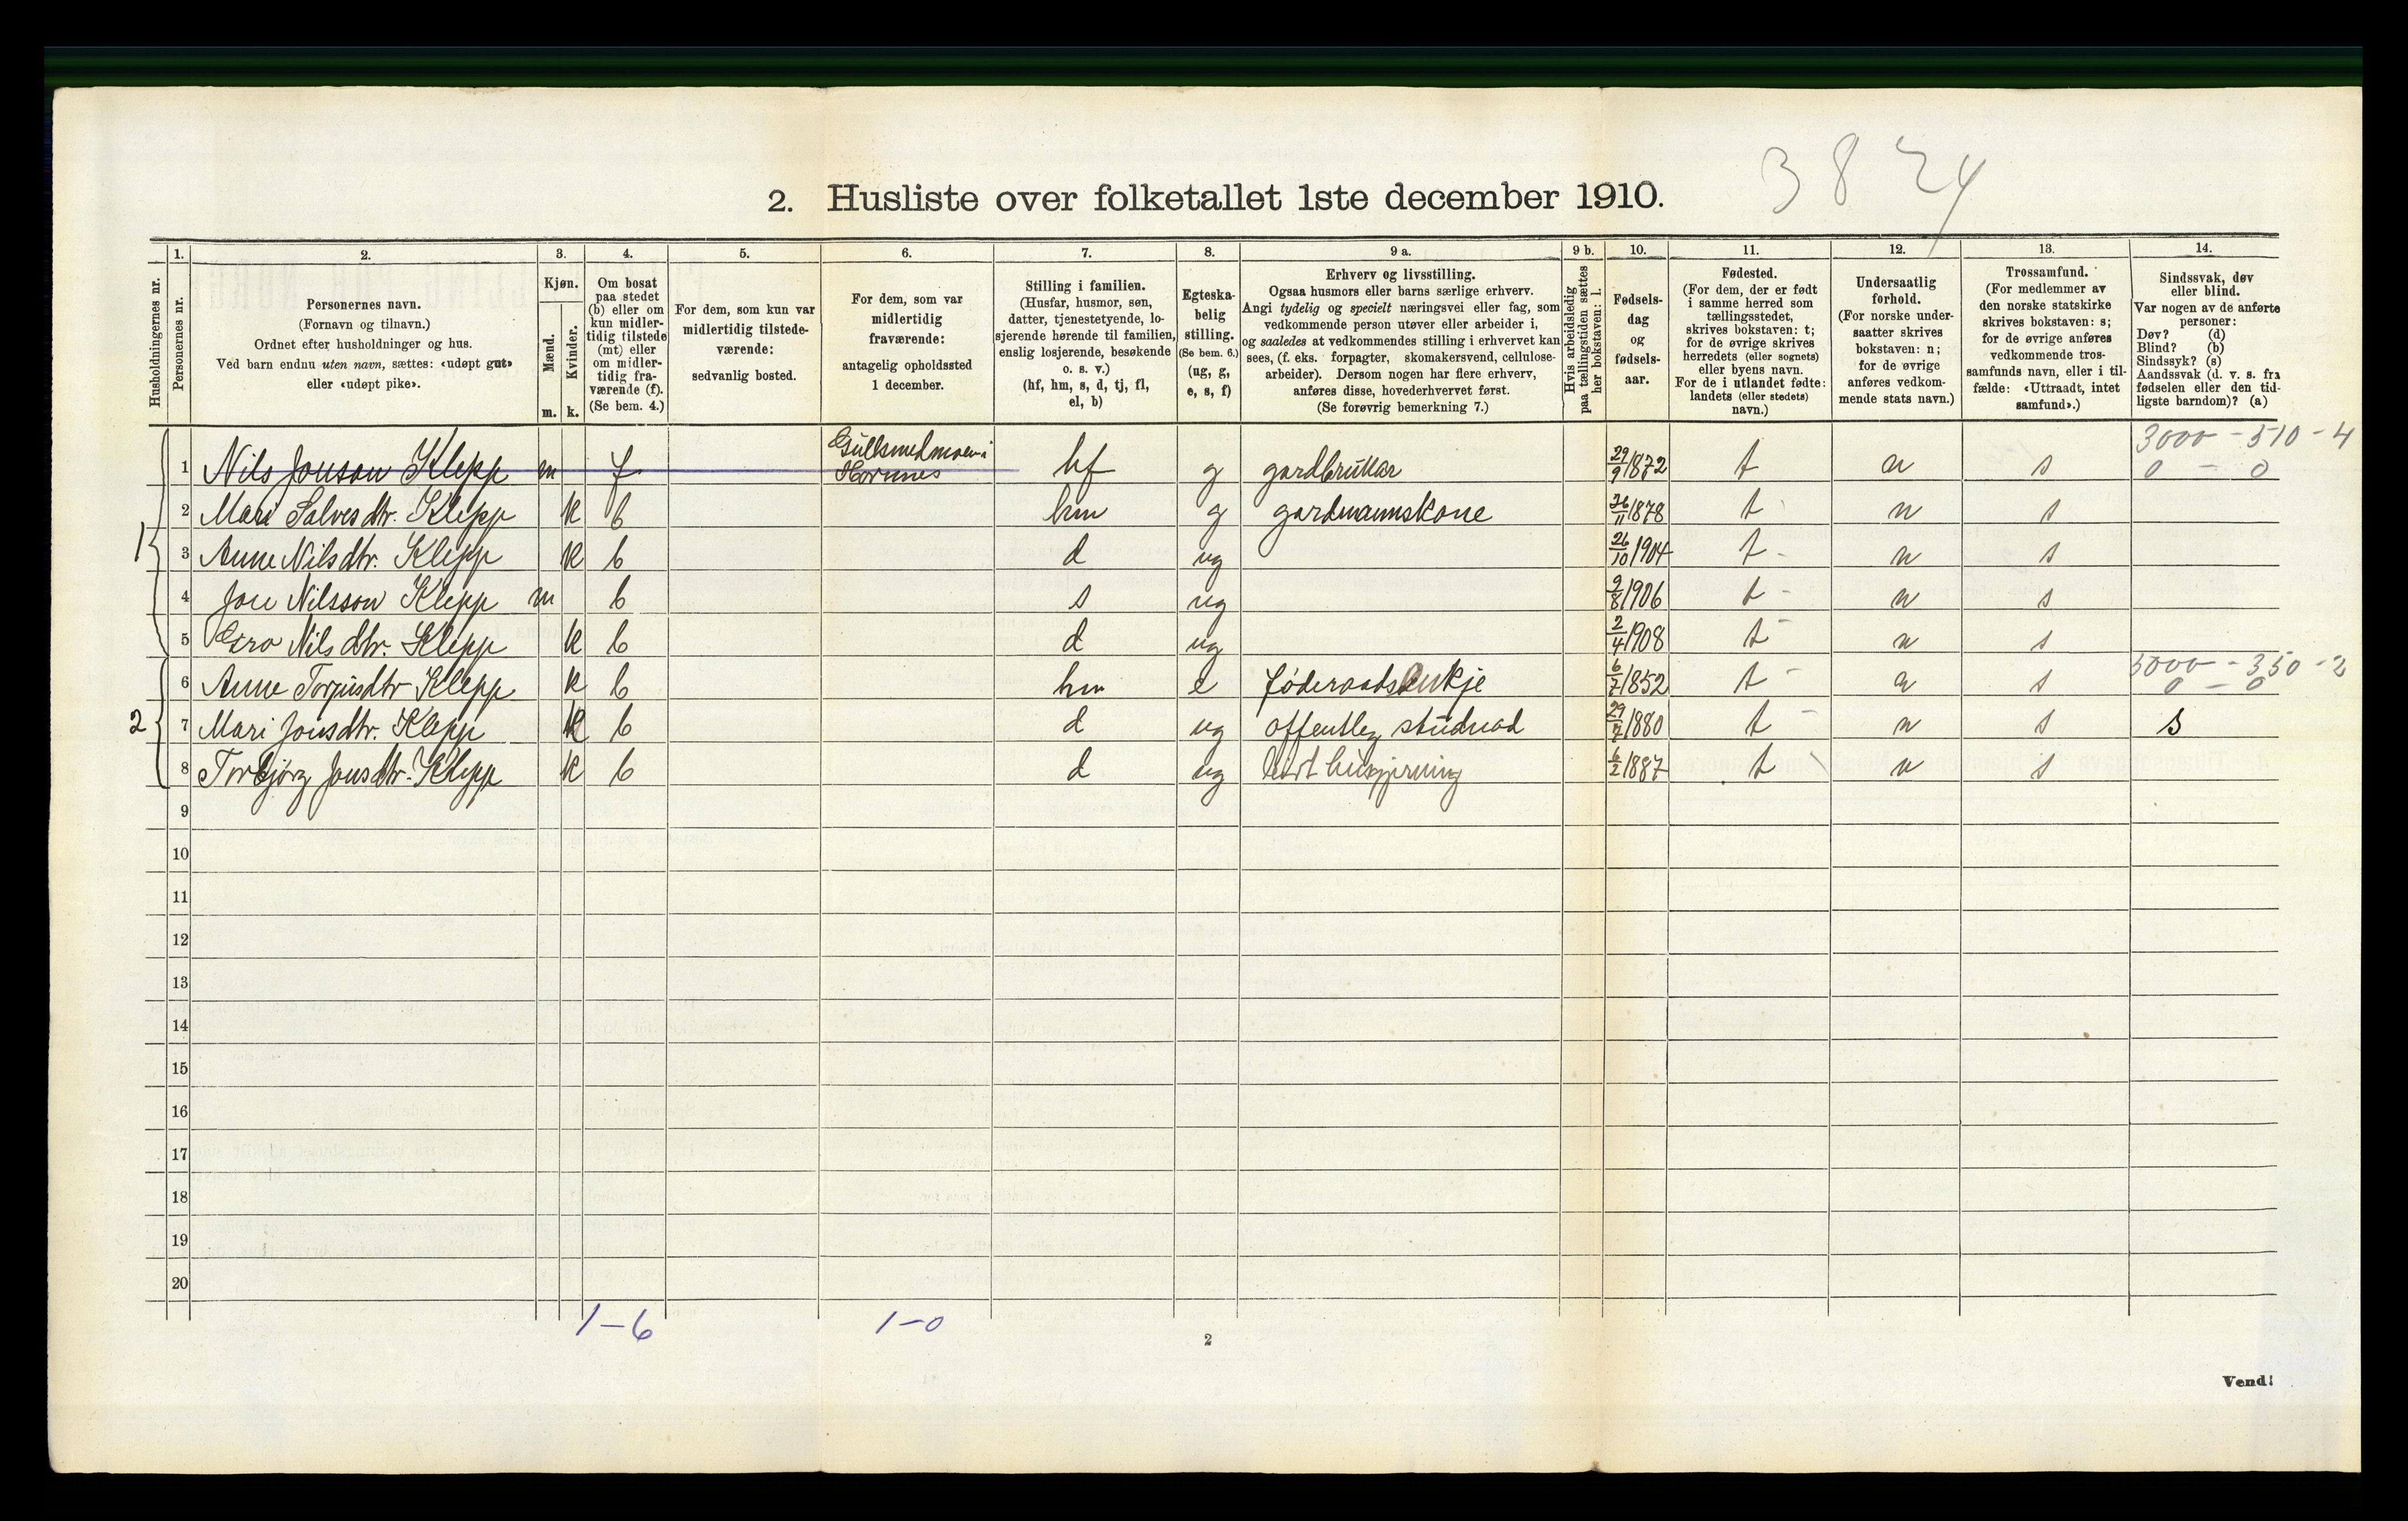 3824
2. Husliste over folketallet 1ste december 1910.
Husholdningernes nr.
1. Personernes nr.
2. Personernes navn.
(Fornavn og tilnavn.)
Ordnet efter husholdninger og hus.
Ved barn endnu uten navn, sættes: «udøpt gut»
eller «udøpt pike».
3. Kjøn.
Mænd. m.
Kvinder. k.
4. Om bosat
paa stedet
(b) eller om
kun midler-
tidig tilstede
(mt) eller
om midler-
tidig fra-
værende (f).
(Se bem. 4.)
5. For dem, som kun var
midlertidig tilstede-
værende:
sedvanlig bosted.
6. For dem, som var
midlertidig
fraværende:
antagelig opholdssted
1 december.
7. Stilling i familien.
(Husfar, husmor, søn,
datter, tjenestetyende, lo-
sjerende hørende til familien,
enslig losjerende, besøkende
o. s. v.)
(hf, hm, s, d, tj, fl,
el, b)
8. Egteska-
belig
stilling.
(Se bem. 6.)
(ug, g,
e, s, f)
9 a. Erhverv og livsstilling.
Ogsaa husmors eller barns særlige erhverv.
Angi tydelig og specielt næringsvei eller fag, som
vedkommende person utøver eller arbeider i,
og saaledes at vedkommendes stilling i erhvervet kan
sees, (f. eks. forpagter, skomakersvend, cellulose-
arbeider). Dersom nogen har flere erhverv,
anføres disse, hovederhvervet først.
(Se forøvrig bemerkning 7.)
9 b. Hvis arbeidsledig
paa tællingstiden sættes
her bokstaven: l.
10. Fødsels-
dag
og
fødsels-
aar.
11. Fødested.
(For dem, der er født
i samme herred som
tællingsstedet,
skrives bokstaven: t;
for de øvrige skrives
herredets (eller sognets)
eller byens navn.
For de i utlandet fødte:
landets (eller stedets)
navn.)
12. Undersaatlig
forhold.
(For norske under-
saatter skrives
bokstaven: n;
for de øvrige
anføres vedkom-
mende stats navn.)
13. Trossamfund.
(For medlemmer av
den norske statskirke
skrives bokstaven: s;
for de øvrige anføres
vedkommende tros-
samfunds navn, eller i til-
fælde: «Uttraadt, intet
samfund».)
14. Sindssvak, døv
eller blind.
Var nogen av de anførte
personer:
Døv? (d)
Blind? (b)
Sindssyk? (s)
Aandssvak (d. v. s. fra
fødselen eller den tid-
ligste barndom)? (a)
3000 - 510 - 4
1 1 Nils Jonson Klepp m f Gullsmedmoen i Hornnes hf g gardbrukar 29/9 1872 t n s 0 - 0
2 Mari Salvesdtr. Klepp k b hm g gardmannskone 26/11 1878 t n s
3 Anne Nilsdtr. Klepp k b d ug 26/10 1904 t - n s
4 Jon Nilsson Klepp m b s ug 9/8 1906 t - n s
5 Gro Nilsdtr. Klepp k b d ug 2/4 1908 t - n s
5000 - 350 - 2
2 6 Anne Torjusdtr Klepp k b hm e føderaadsenkje 6/7 1852 t - n s 0 - 0
7 Mari Jonsdtr. Klepp k b d ug offentleg studnad 29/7 1880 t - n s s
8 Torbjørg Jonsdtr. Klepp k b d ug husgjerning 6/2 1887 t n s
9
10
11
12
13
14
15
16
17
18
19
20
1-6 1-0
2
Vend!